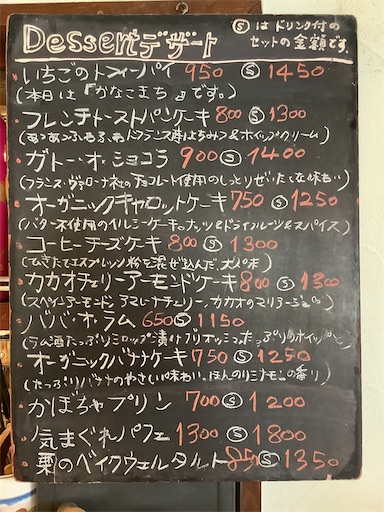 Dessert デザート
Ⓢはドリンク付の
セットの金額です。
・いちごのトフィーパイ 950 Ⓢ 1450
(本日は『かなこまち』です。)
・フレンチトーストパンケーキ 800 Ⓢ 1300
フランス産はちみつ&ホイップクリーム)
・ガトー・オ・ショコラ 900 Ⓢ 1400
(フランス・ヴァローナ社のチョコレート使用のしっとりぜいたくな味わい)
・オーガニックキャロットケーキ 750 Ⓢ 1250
(バター不使用のオイルケーキ。ナッツ&ドライフルーツ&スパイス)
・コーヒーチーズケーキ 800 Ⓢ 1300
(ひきたてエスプレッソ粉を混ぜ込んだ、大人味)
・カカオチェリーアーモンドケーキ 800 Ⓢ 1300
(スペインアーモンド、アマレーナチェリー、カカオの
・ババ・オ・ラム 650 Ⓢ 1150
(ラム酒たっぷりシロップ漬けブリオッシュ
・オーガニックバナナケーキ 750 Ⓢ 1250
(たっぷりバナナのやさしい味わい。ほんのりシナモンの香り)
・かぼちゃプリン 700 Ⓢ 1200
・気まぐれパフェ 1300 Ⓢ 1800
・栗のベイクウェルタルト 850 Ⓢ 1350